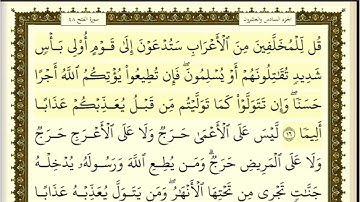 الجزء السادس والعشرون سورة الفتح ٤٨
قُل لِّلْمُخَلَّفِينَ مِنَ ٱلْأَعْرَابِ سَتُدْعَوْنَ إِلَىٰ قَوْمٍ أُو۟لِى بَأْسٍ
شَدِيدٍ تُقَـٰتِلُونَهُمْ أَوْ يُسْلِمُونَ ۖ فَإِن تُطِيعُوا۟ يُؤْتِكُمُ ٱللَّهُ أَجْرًا
حَسَنًا ۖ وَإِن تَتَوَلَّوْا۟ كَمَا تَوَلَّيْتُم مِّن قَبْلُ يُعَذِّبْكُمْ عَذَابًا
أَلِيمًا ١٦ لَّيْسَ عَلَى ٱلْأَعْمَىٰ حَرَجٌ وَلَا عَلَى ٱلْأَعْرَجِ حَرَجٌ
وَلَا عَلَى ٱلْمَرِيضِ حَرَجٌ ۗ وَمَن يُطِعِ ٱللَّهَ وَرَسُولَهُۥ يُدْخِلْهُ
جَنَّـٰتٍ تَجْرِى مِن تَحْتِهَا ٱلْأَنْهَـٰرُ ۖ وَمَن يَتَوَلَّ يُعَذِّبْهُ عَذَابًا